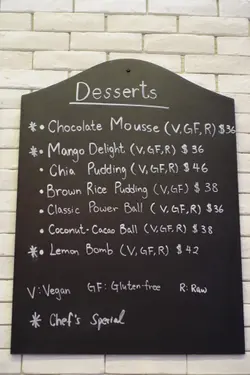 Desserts
* • Chocolate Mousse (V,GF,R) $36
* • Mango Delight (V,GF,R) $36
• Chia Pudding (V,GF,R) $46
• Brown Rice Pudding (V,GF) $38
• Classic Power Ball (V,GF,R) $36
• Coconut-Cacao Ball (V,GF,R) $38
* • Lemon Bomb (V,GF,R) $42
V: Vegan GF: Gluten-free R: Raw
* Chef's Special